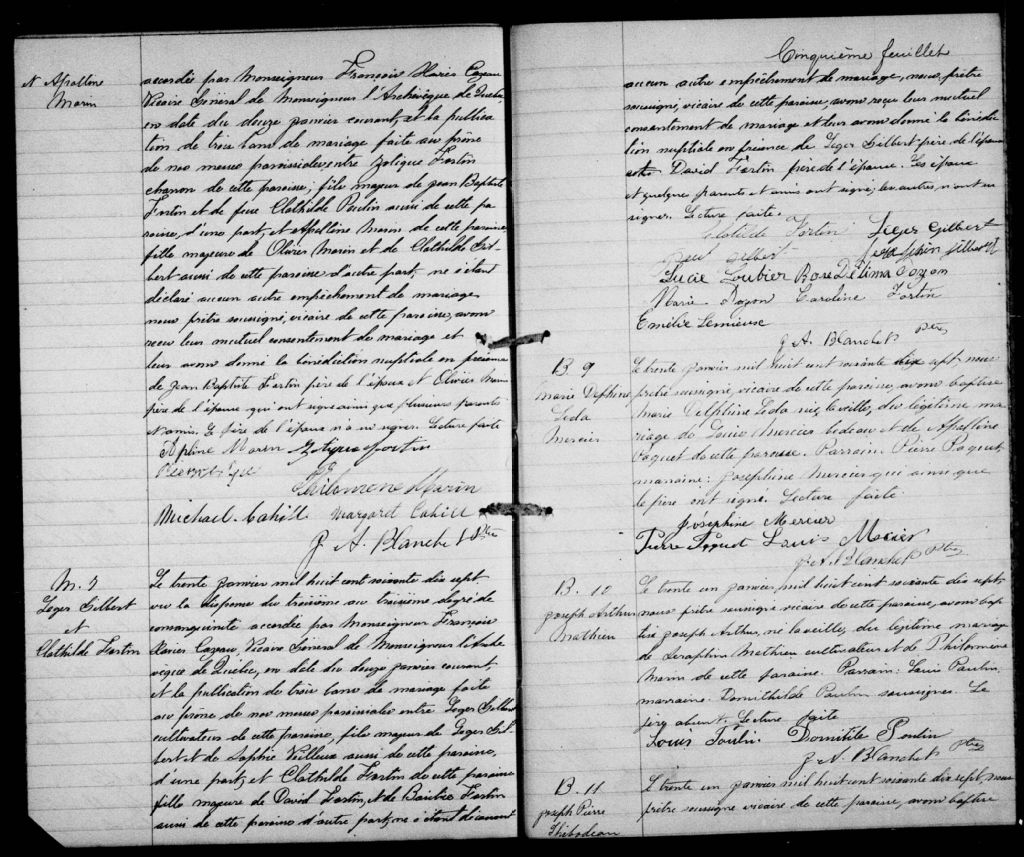 et Apolline
Marin
accordée par Monseigneur François Xavier Cazeau
Vicaire Général de Monseigneur l'Archevêque de Québec,
en date du douze janvier courant, et la publica
tion de trois bans de mariage faite au prône
de nos messes paroissiales entre Zotique Fortin
charron de cette paroisse, fils majeur de Jean Baptiste
Fortin et de feue Clothilde Poulin aussi de cette pa
roisse, d'une part, et Apolline Marin de cette paroisse
fille majeure de Olivier Marin et de Clothilde Gil
bert aussi de cette paroisse d'autre part, ne s'étant
déclaré aucun autre empêchement de mariage
nous prêtre soussigné, vicaire de cette paroisse, avons
reçu leur mutuel consentement de mariage et
leur avons donné la bénédiction nuptiale en présence
de Jean Baptiste Fortin père de l'époux et Olivier Marin
père de l'épouse qui ont signé ainsi que plusieurs parents
et amis. Le père de l'époux n'a su signer. Lecture faite
Apline Marin Zotique Fortin
Philomene Marin
Michael Cahill Margaret Cahill
J. A. Blanchet Ptre
M. 7
Leger Gilbert
et
Clothilde Fortin
Le trente janvier mil huit cent soixante dix sept
vu la dispense du troisième au troisième degré de
consanguinité accordée par Monseigneur François
Xavier Cazeau, Vicaire Général de Monseigneur l'Arche
vêque de Québec, en date du douze janvier courant,
et la publication de trois bans de mariage faite
au prône de nos messes paroissiales entre Leger Gilbert
cultivateur de cette paroisse, fils majeur de Leger Gil
bert et de Sophie Veilleux aussi de cette paroisse,
d'une part, et Clothilde Fortin de cette paroisse
fille majeure de David Fortin, et de Barbie Fortin
aussi de cette paroisse d'autre part, ne s'étant découvert
Cinquième feuillet
aucun autre empêchement de mariage, nous, prêtre
soussigné, vicaire de cette paroisse, avons reçu leur mutuel
consentement de mariage et leur avons donné la bénédic
tion nuptiale en présence de Leger Gilbert père de l'époux
et David Fortin père de l'épouse. Les époux
et quelques parents et amis ont signé; les autres n'ont su
signer. Lecture faite.
Clotilde Fortin Leger Gilbert
Gilbert Josephin Gilbert
Lucie Loubier Rose Délima Dozon
Marie Doyon Caroline Fortin
Emélie Lemieux
J. A. Blanchet Ptre
B. 9
Marie Delphine
Leda
Mercier
Le trente janvier mil huit cent soixante dix sept nous
prêtre soussigné, vicaire de cette paroisse, avons baptisé
Marie Delphine Leda née la veille, du légitime ma
riage de Louis Mercier bedeau et de Appolline
Paquet de cette paroisse. Parrain: Pierre Paquet,
marraine: Josephine Mercier qui ainsi que
le père ont signé. Lecture faite.
Joséphine Mercier
Pierre Paquet Louis Mercier
J. A. Blanchet Ptre
B. 10
Joseph Arthur
Mathieu
Le trente un janvier, mil huit cent soixante dix sept,
nous prêtre soussigné vicaire de cette paroisse, avons bap
tisé Joseph Arthur, né la veille, du légitime mariage
de Seraphin Mathieu cultivateur et de Philomène
Marin de cette paroisse. Parrain: Louis Poulin,
marraine: Domithilde Poulin soussignés. Le
père absent. Lecture faite
Louis Poulin. Domitile Poulin
J. A. Blanchet Ptre
B. 11
Joseph Pierre
Thibodeau
Le trente un janvier mil huit cent soixante dix sept, nous
prêtre soussigné vicaire de cette paroisse, avons baptisé